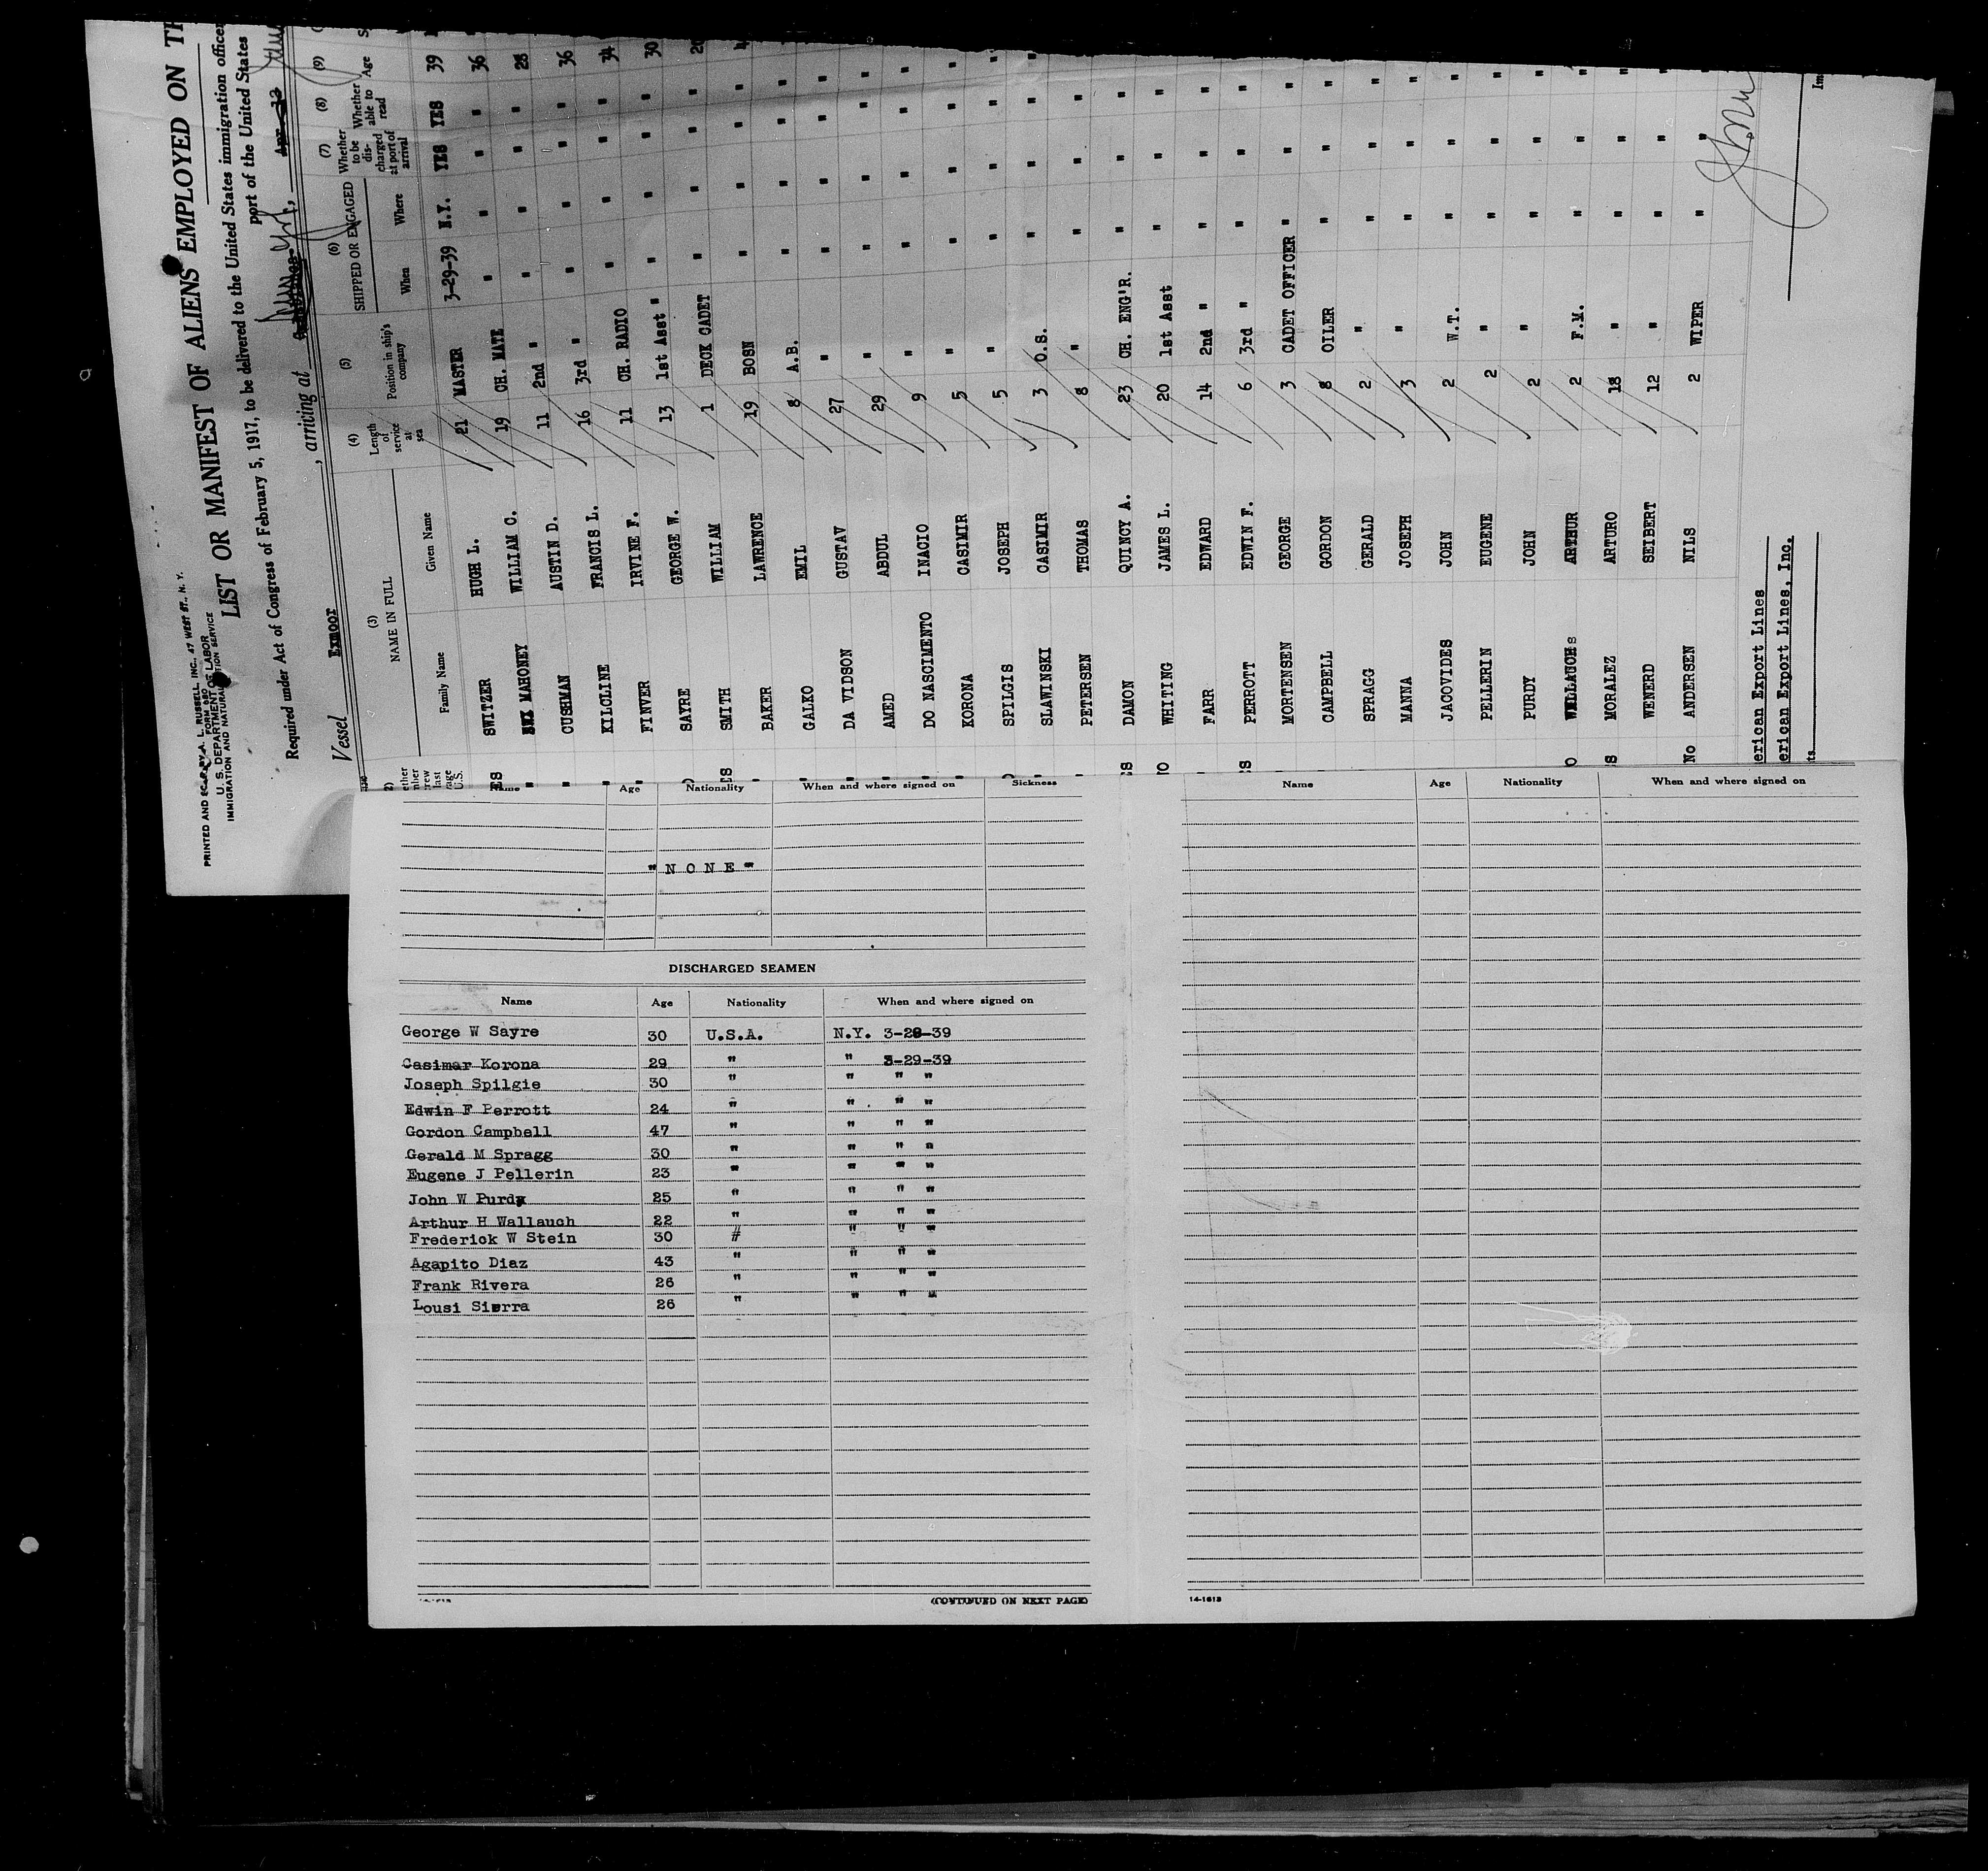 PRINTED AND FOR SALE BY A. L. RUSSELL, INC., 47 WEST ST., N. Y.
FORM 680
U. S. DEPARTMENT OF LABOR
IMMIGRATION AND NATURALIZATION SERVICE
LIST OR MANIFEST OF ALIENS EMPLOYED ON
Required under Act of Congress of February 5, 1917, to be delivered to the United States immigration officer
port of the United States
Vessel Exmoor, arriving at
(3) (4) (5) (6) (7) (8) (9)
NAME IN FULL Length of service at sea Position in ship's company SHIPPED OR ENGAGED Whether to be discharged at port of arrival Whether able to read Age
Family Name Given Name When Where
SWITZER HUGH L. 21 MASTER 3-29-39 N.Y. YES YES 39
MAHONEY WILLIAM C. 19 CH. MATE " " " " 36
CUSHMAN AUSTIN D. 11 2nd " " " " " 28
KILCLINE FRANCIS L. 16 3rd " " " " " 36
FINVER IRVINE F. 11 CH. RADIO " " " " 34
SAYRE GEORGE W. 13 1st Asst " " " " " 30
SMITH WILLIAM 1 DECK CADET " " " "
BAKER LAWRENCE 19 BOSN " " " "
GALKO EMIL 8 A.B. " " " "
DA VIDSON GUSTAV 27 " " " " "
AMED ABDUL 29 " " " " "
DO NASCIMENTO INACIO 9 " " " " "
KORONA CASIMIR 5 " " " " "
SPILGIS JOSEPH 5 " " " " "
SLAWINSKI CASIMIR 3 O.S. " " " "
PETERSEN THOMAS 8 " " " " "
DAMON QUINCY A. 23 CH. ENG'R. " " " "
WHITING JAMES L. 20 1st Asst " " " "
FARR EDWARD 14 2nd " " " " "
PERROTT EDWIN F. 6 3rd " " " " "
MORTENSEN GEORGE 3 CADET OFFICER " " " "
CAMPBELL GORDON 8 OILER " " " "
SPRAGG GERALD 2 " " " " "
MANNA JOSEPH 3 " " " " "
JACOVIDES JOHN 2 W.T. " " " "
PELLERIN EUGENE 2 " " " " "
PURDY JOHN 2 " " " " "
ARTHUR 2 F.M. " " " "
MORALEZ ARTURO 18 " " " " "
WENERD SEIBERT 12 " " " " "
No ANDERSEN NILS 2 WIPER " " " "
erican Export Lines
erican Export Lines, Inc.
Name Age Nationality When and where signed on Sickness
"NONE"
DISCHARGED SEAMEN
Name Age Nationality When and where signed on
George W Sayre 30 U.S.A. N.Y. 3-29-39
Casimar Korona 29 " " 3-29-39
Joseph Spilgie 30 " " " "
Edwin F Perrott 24 " " " "
Gordon Campbell 47 " " " "
Gerald M Spragg 30 " " " "
Eugene J Pellerin 23 " " " "
John W Purdy 25 " " " "
Arthur H Wallauch 22 " " " "
Frederick W Stein 30 # " " "
Agapito Diaz 43 " " " "
Frank Rivera 26 " " " "
Lousi Sierra 26 " " " "
(CONTINUED ON NEXT PAGE)
Name Age Nationality When and where signed on
14-1613